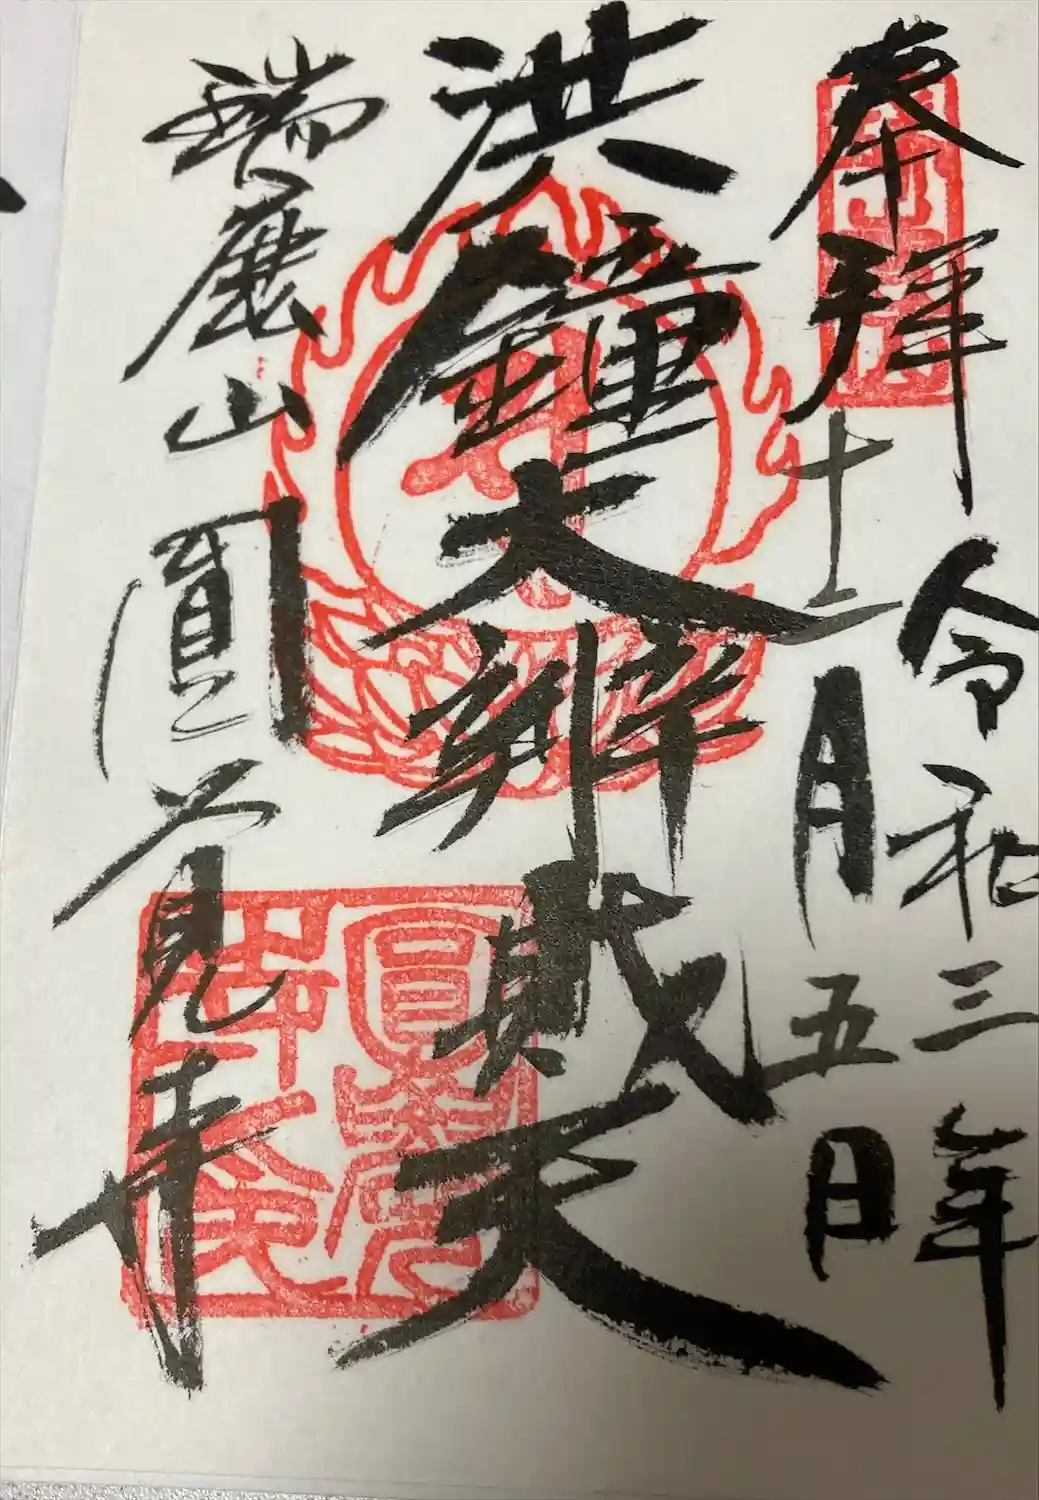 奉拝
令和三年
十二月五日
洪鐘大辨財天
瑞鹿山
圓覚寺